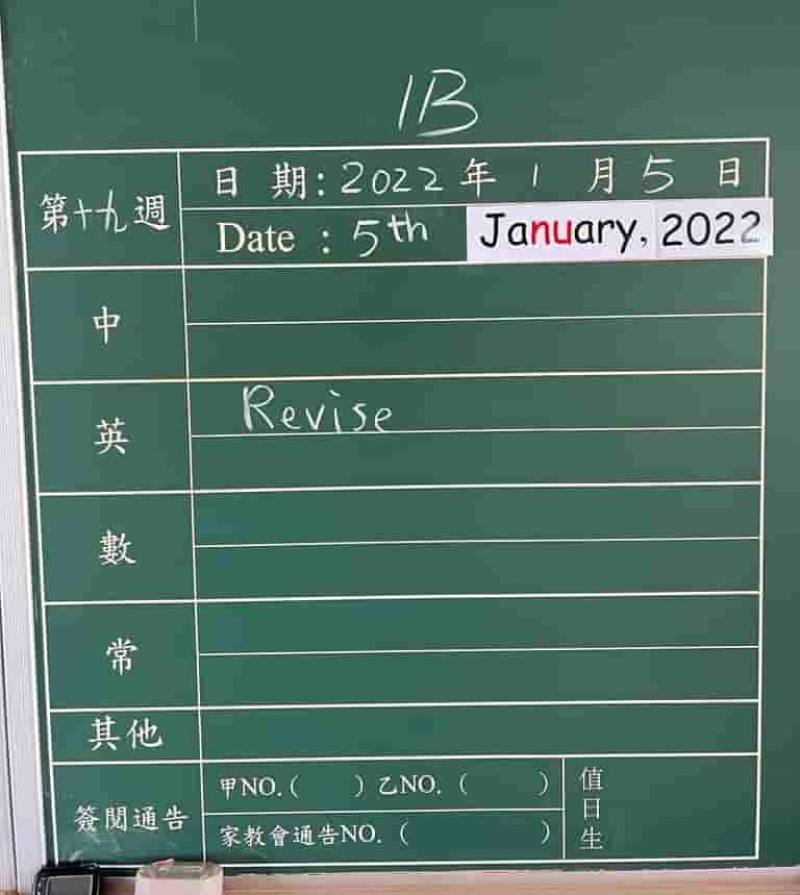 1B
第十九週
日 期:2022年 1 月 5 日
Date : 5th January, 2022
中
英 Revise
數
常
其他
簽閱通告
甲NO.( )乙NO. ( )
家教會通告NO. ( )
值日生